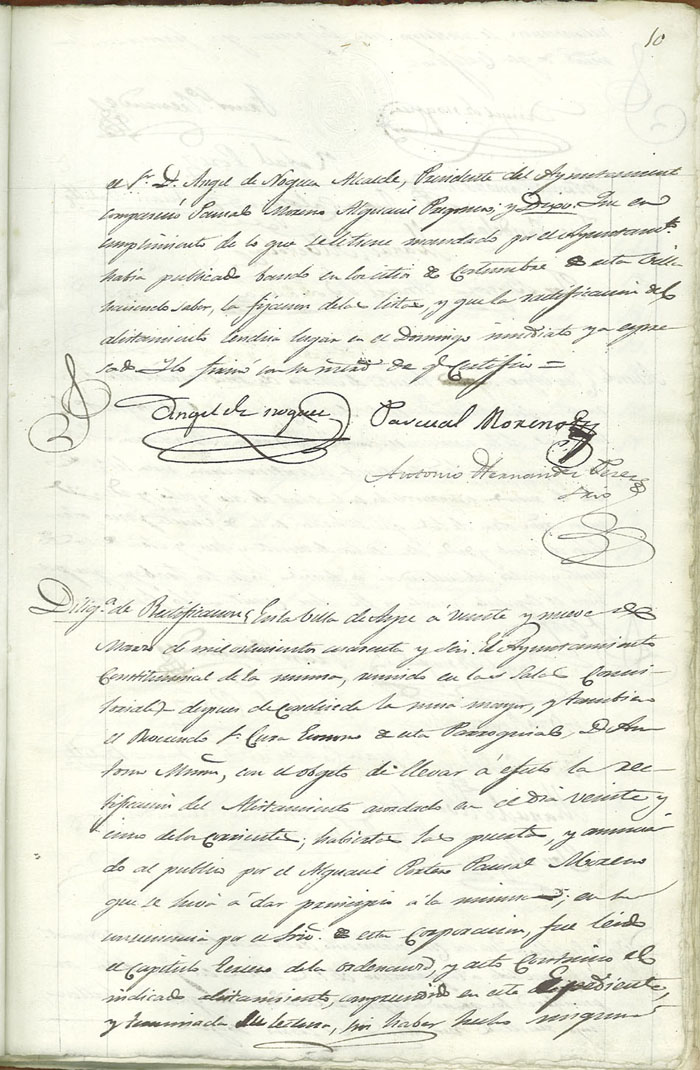 10
el Sr. D. Angel de Noguera Alcalde, Presidente del Ayuntamiento
compareció Pascual Moreno Alguacil Pregonero; y Dixo. Que en
cumplimiento de lo que se le tiene mandado por el Ayuntamto.
había publicado bando en los sitios de costumbre de esta Villa
haciendo saber, la fijacion de la lista, y que la rectificacion del
alistamiento tendria lugar en el Domingo inmediato ya espre-
sado. Y lo firmó con su mrd. de q. Certifico =
Angel de Noguera Pascual Moreno
Antonio Hernandez Perez
Srio
Dilig.a de Rectificacion. En la Villa de Aspe á veinte y nueve de
Marzo de mil ochocientos cuarenta y dos. El Ayuntamiento
Constitucional de la misma, reunido en las Salas Consis-
toriales despues de concluida la misa mayor, y tambien
el Reverendo Sr. Cura Economo de esta Parroquial, D. An-
tonio con el objeto de llevar á efecto la rec-
tificacion del Alistamiento acordado en el dia veinte y
cinco de los corrientes; habierta la puerta, y anuncia-
do al publico por el Alguacil Portero Pascual Moreno
que se hiva á dar principio á la misma; en su
consecuencia por el Srio. de esta Corporacion, fue leido
el Capitulo tercero de la ordenanza, y acto continuo el
indicado alistamiento, comprendido en este Espediente,
y terminada su lectura, sin haber hecho ninguna